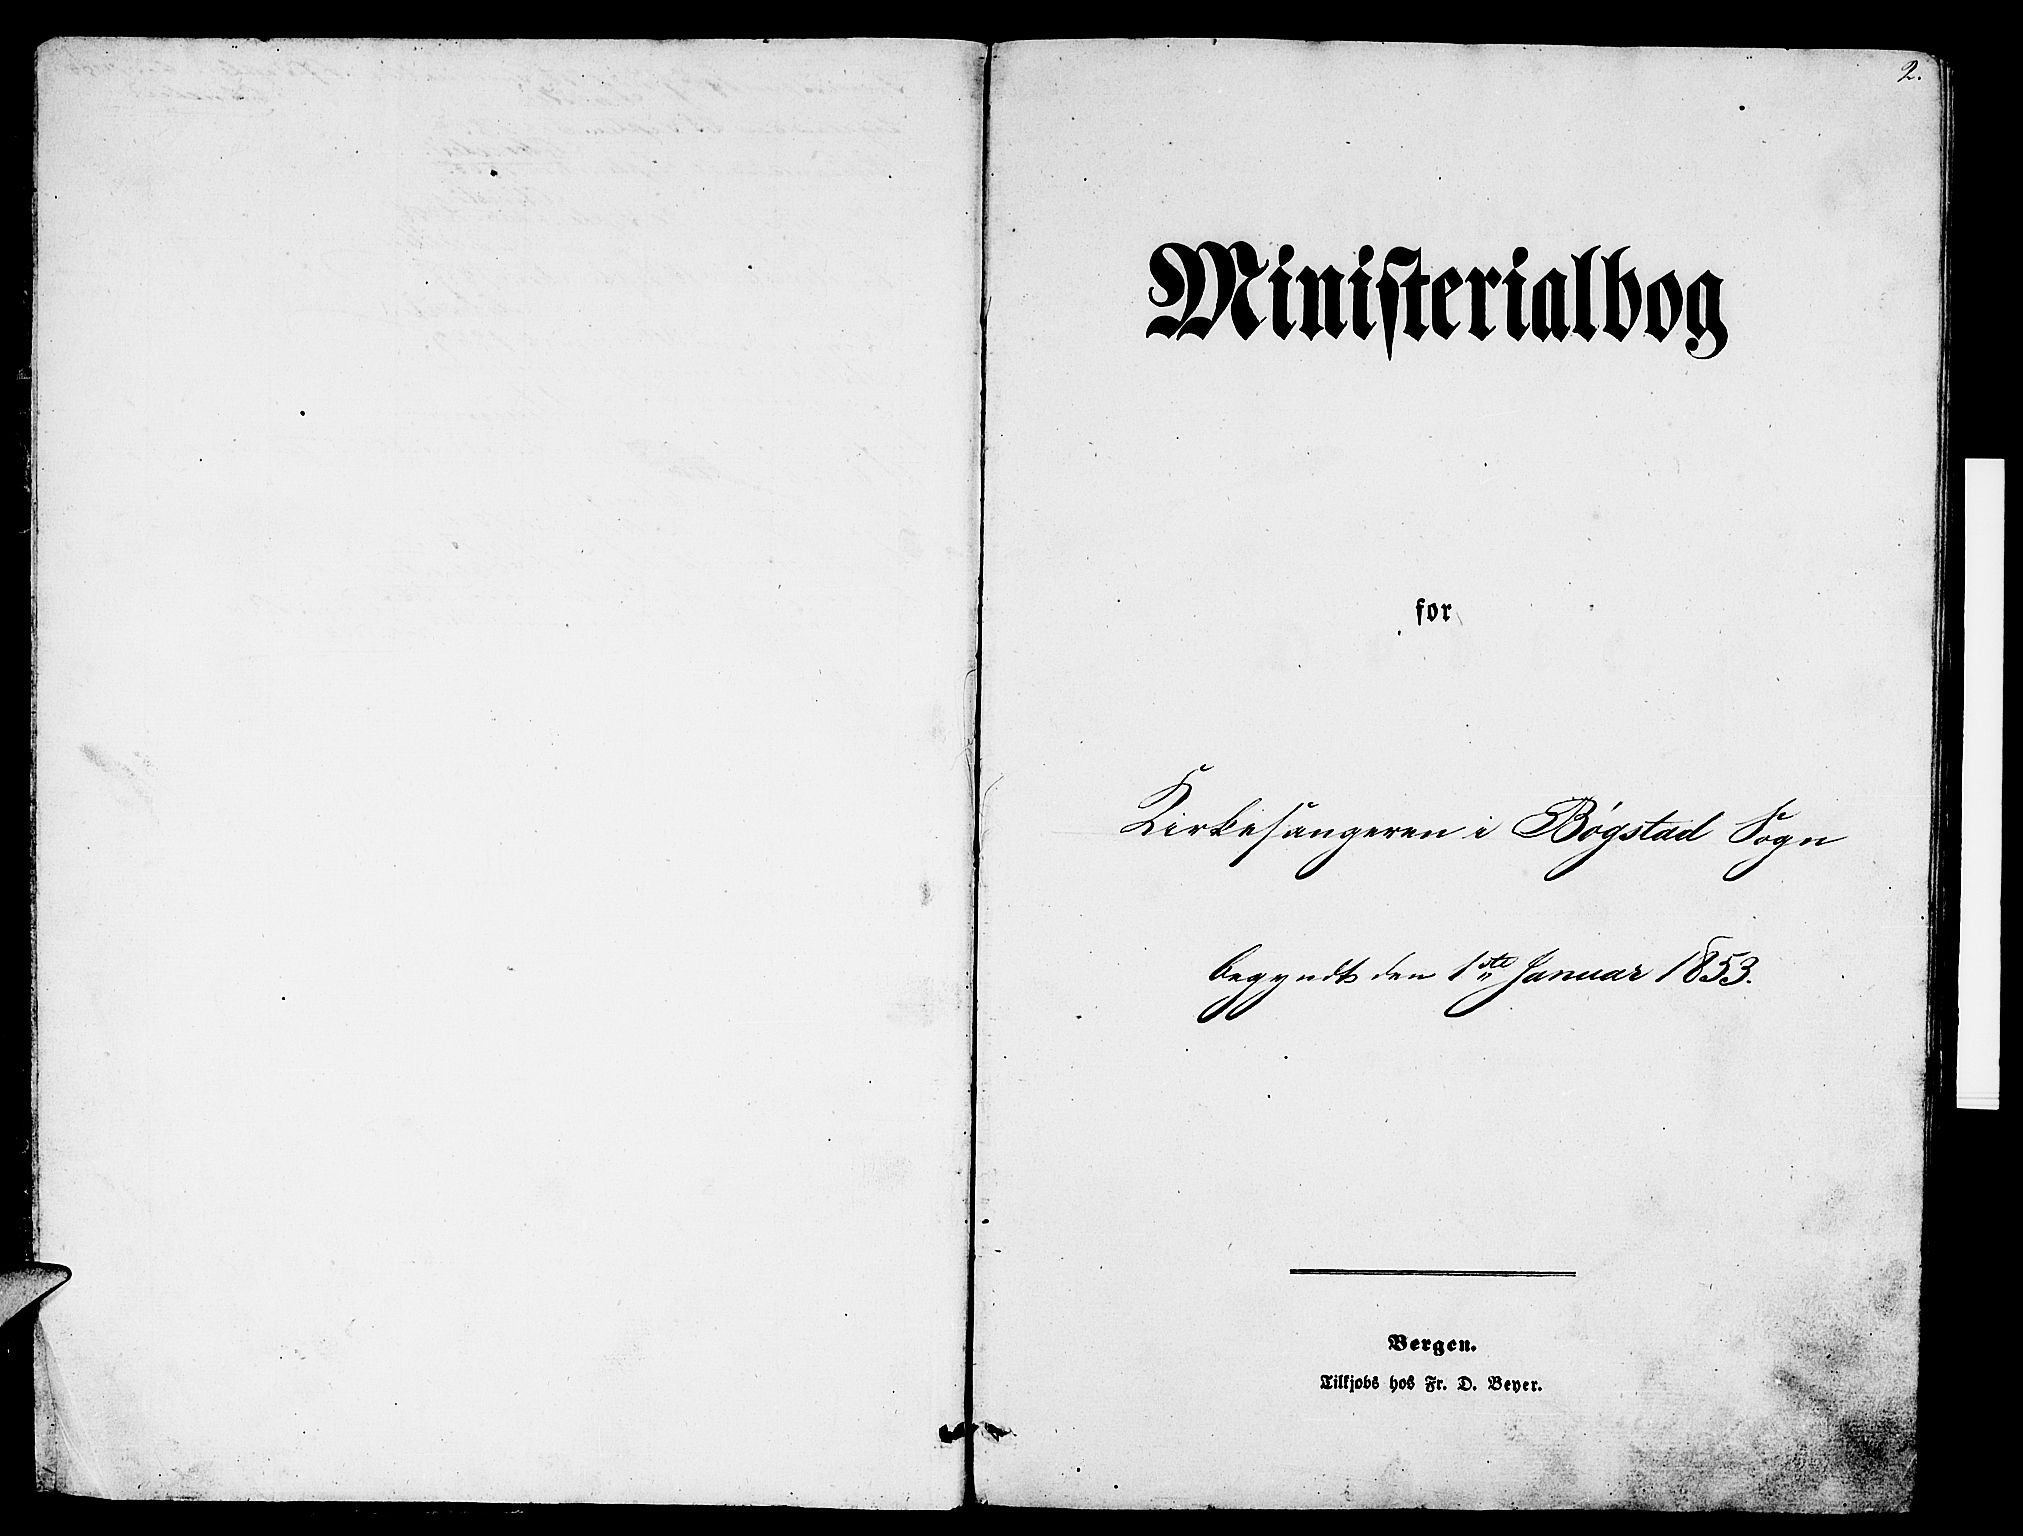 2.
Ministerialbog
for
Kirkesangeren i Bøgstad Sogn
begyndt den 1ste Januar 1853.
Bergen.
Tilkjøbs hos Fr. D. Beyer.